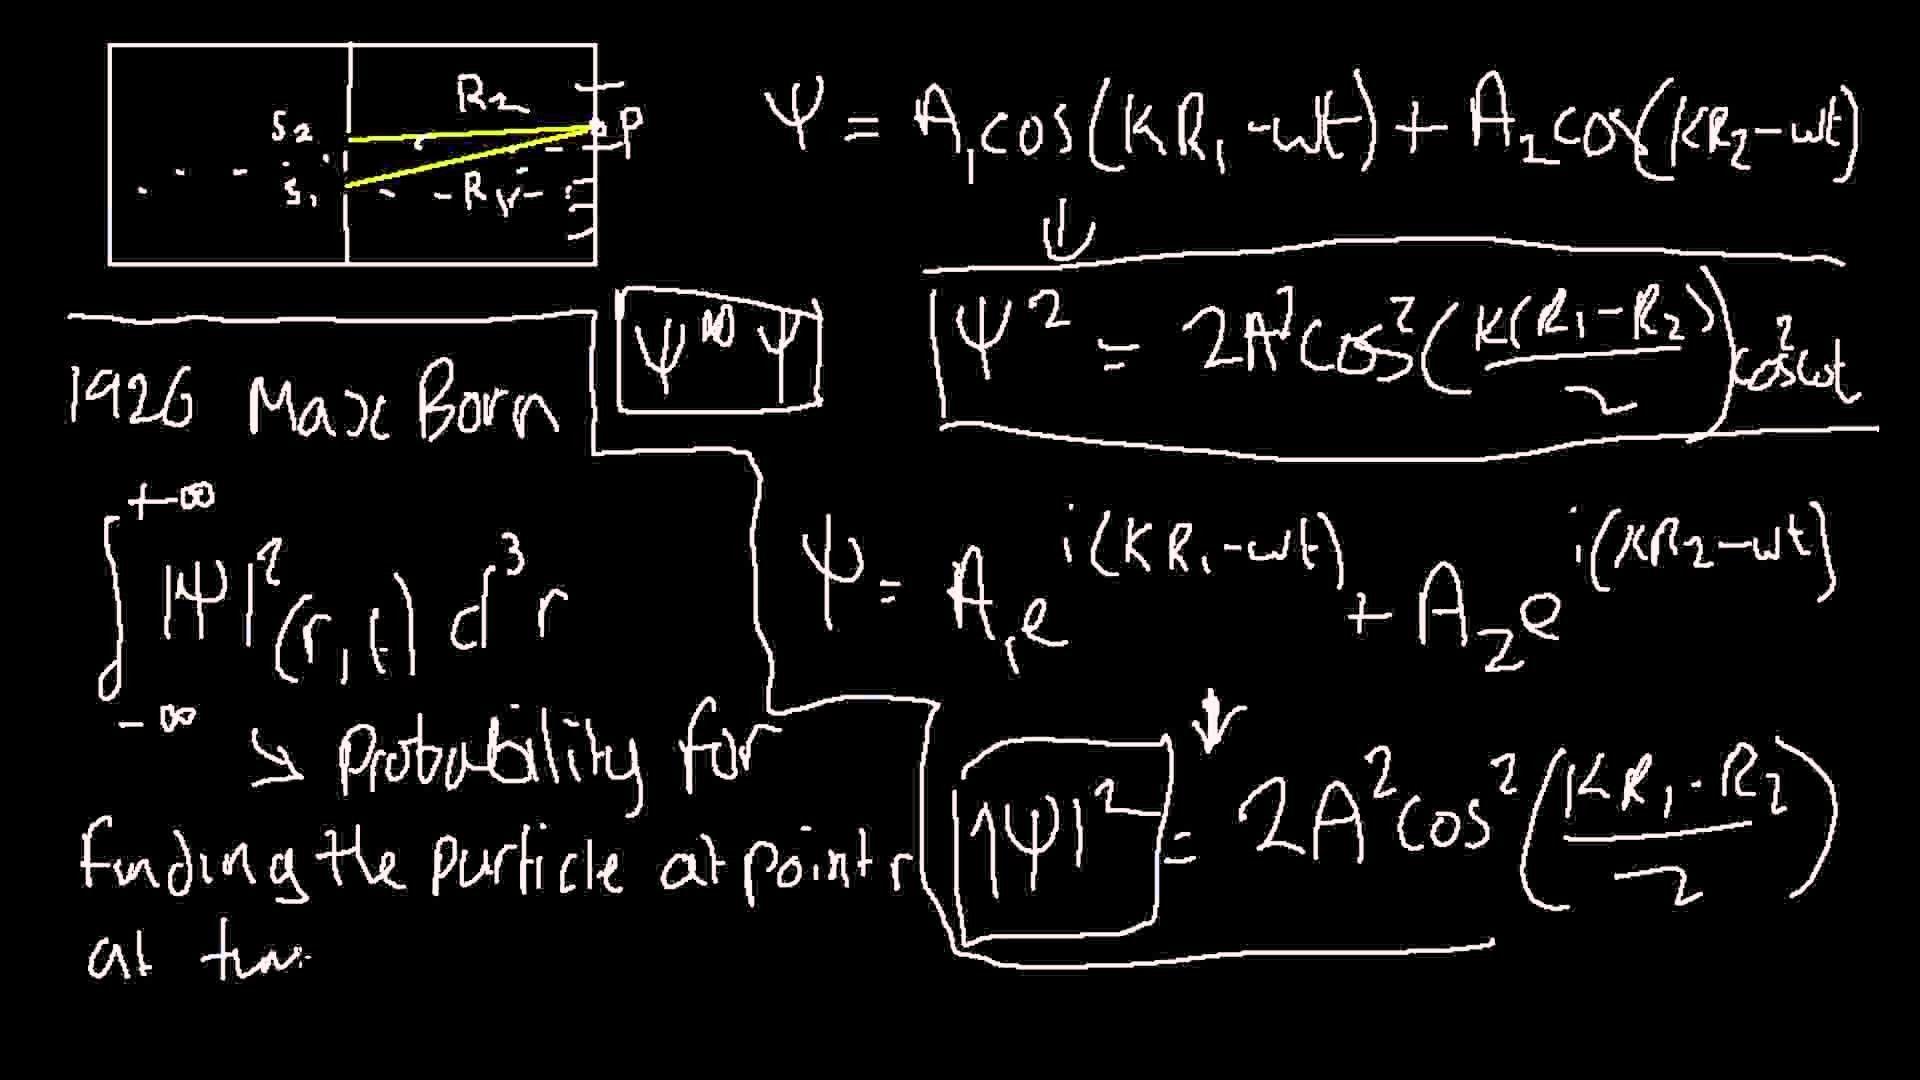 R₂
S₂
P
S₁
R₁
Ψ = A₁cos(KR₁-wt) + A₂cos(KR₂-wt)
Ψ² = 2A²cos²(K(R₁-R₂)/2)cos²wt
Ψ* Ψ
1926 Max Born
∫ +∞ -∞ |Ψ|²(r,t) d³r
Ψ = A₁e^i(KR₁-wt) + A₂e^i(KR₂-wt)
↘ Probability for
finding the particle at point r
at
|Ψ|² = 2A²cos²(KR₁-R₂/2)